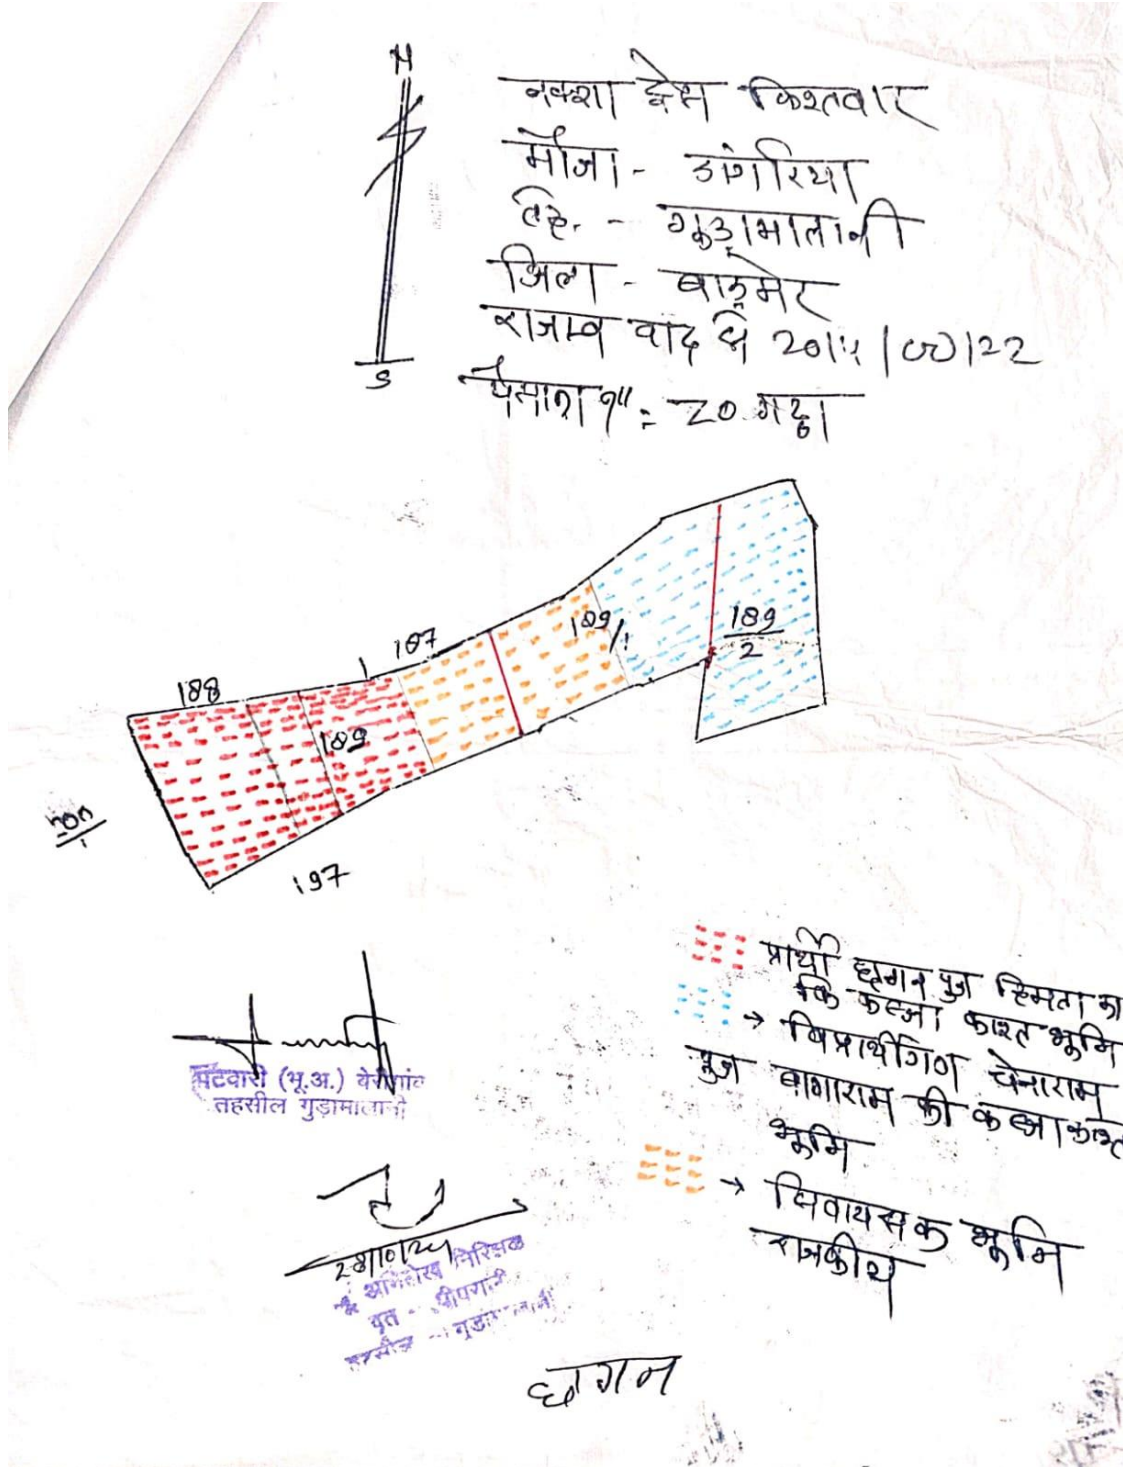 N
S
नक्शा ट्रेस किश्तवार
मौजा - डांगरिया
तह. - गुड़ामालानी
जिला - बाड़मेर
राजस्व वाद
पैमाना १" = 20 गट्ठा
187
188
189/1
189
2
189
197
प्रार्थी छगन पुत्र हिमता का
कि कब्जा काश्त भूमि
→ विप्रार्थीगण चेनाराम
पुत्र बागाराम की कब्जा काश्त
भूमि
→ सिवायचक भूमि
राजकीय
पटवारी (भू.अ.)
तहसील गुड़ामालानी
निरिक्षक
वृत -
छगन